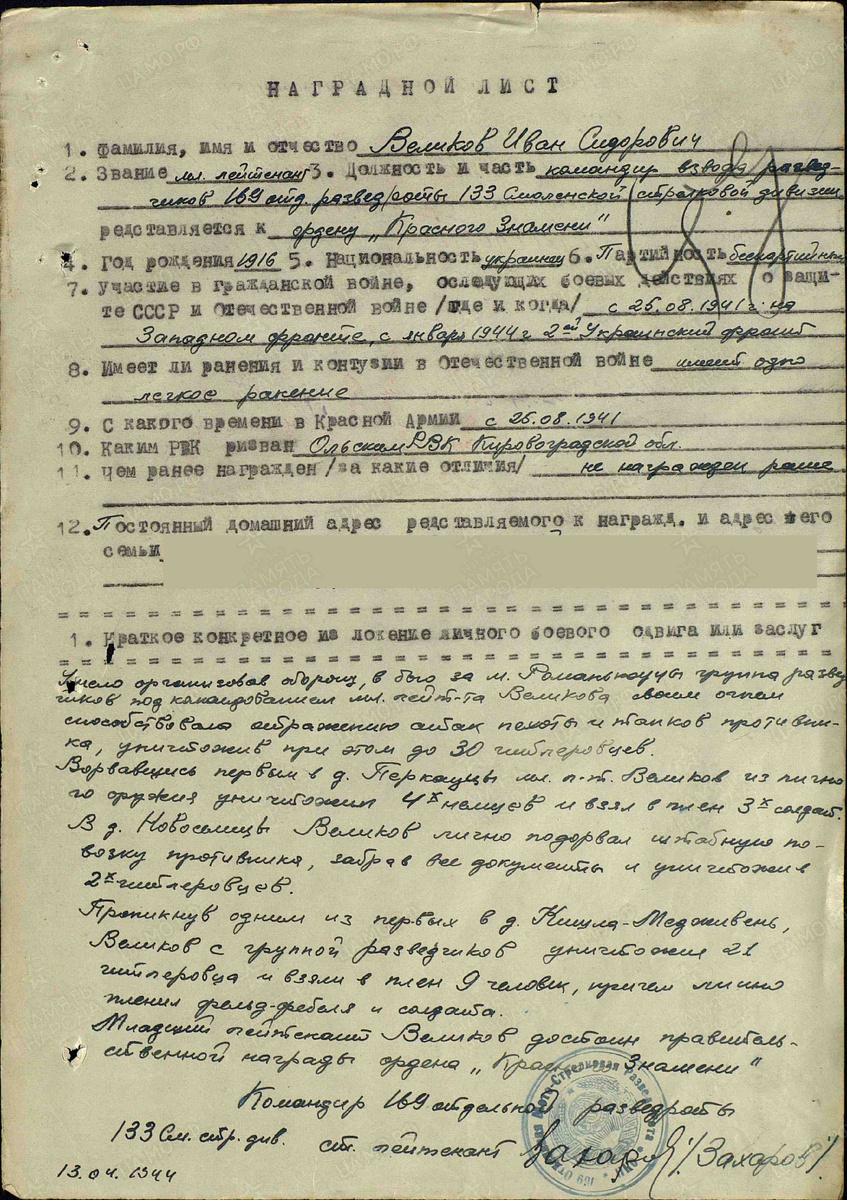 НАГРАДНОЙ ЛИСТ
1. Фамилия, имя и отчество Великов Иван Сидорович
2. Звание мл. лейтенант 3. Должность и часть командир взвода развед-
чиков 169 отд. разведроты 133 Смоленской стрелковой дивизии
редставляется к ордену „Красного Знамени"
4. Год рождения 1916 5. Национальность украинец 6. Партийность беспартийный
7. Участие в гражданской войне, оследующих боевых действиях о защи-
те СССР и Отечественной войне /где и когда/ с 25.08.1941 г. на
Западном фронте, с января 1944 г. 2ой Украинский фронт
8. Имеет ли ранения и контузии в Отечественной войне имеет одно
легкое ранение
9. С какого времени в Красной Армии с 25.08.1941
10. Каким РВК ризван РВК Кировоградской обл.
11. Чем ранее награжден /за какие отличия/ не награжден ранее
12. Постоянный домашний адрес редставляемого к награжд. и адрес его
семьи
1. Краткое конкретное из ложение личного боевого одвига или заслуг
организовав оборону, в бою за м. Романкоуцы группа развед
чиков под командованием мл. лейт-та Великова своим огнем
способствовала отражению атак пехоты и танков противни-
ка, уничтожив при этом до 30 гитлеровцев.
Ворвавшись первым в д. Перкауцы мл. л-т. Великов из лично
го оружия уничтожил 4х немцев и взял в плен 3х солдат.
В д. Новоселицы Великов лично подорвал штабную по-
возку противника, забрав все документы и уничтожив
2х гитлеровцев.
Проникнув одним из первых в д. Кишла-Медживень,
Великов с группой разведчиков уничтожил 21
гитлеровца и взяли в плен 9 человек, причем лично
пленил фельд-фебеля и солдата.
Младший лейтенант Великов достоин правитель-
ственной награды ордена „Красного Знамени"
Командир 169 отдельной разведроты
133 См. стр. див. ст. лейтенант Захаров /Захаров/
13.04.1944